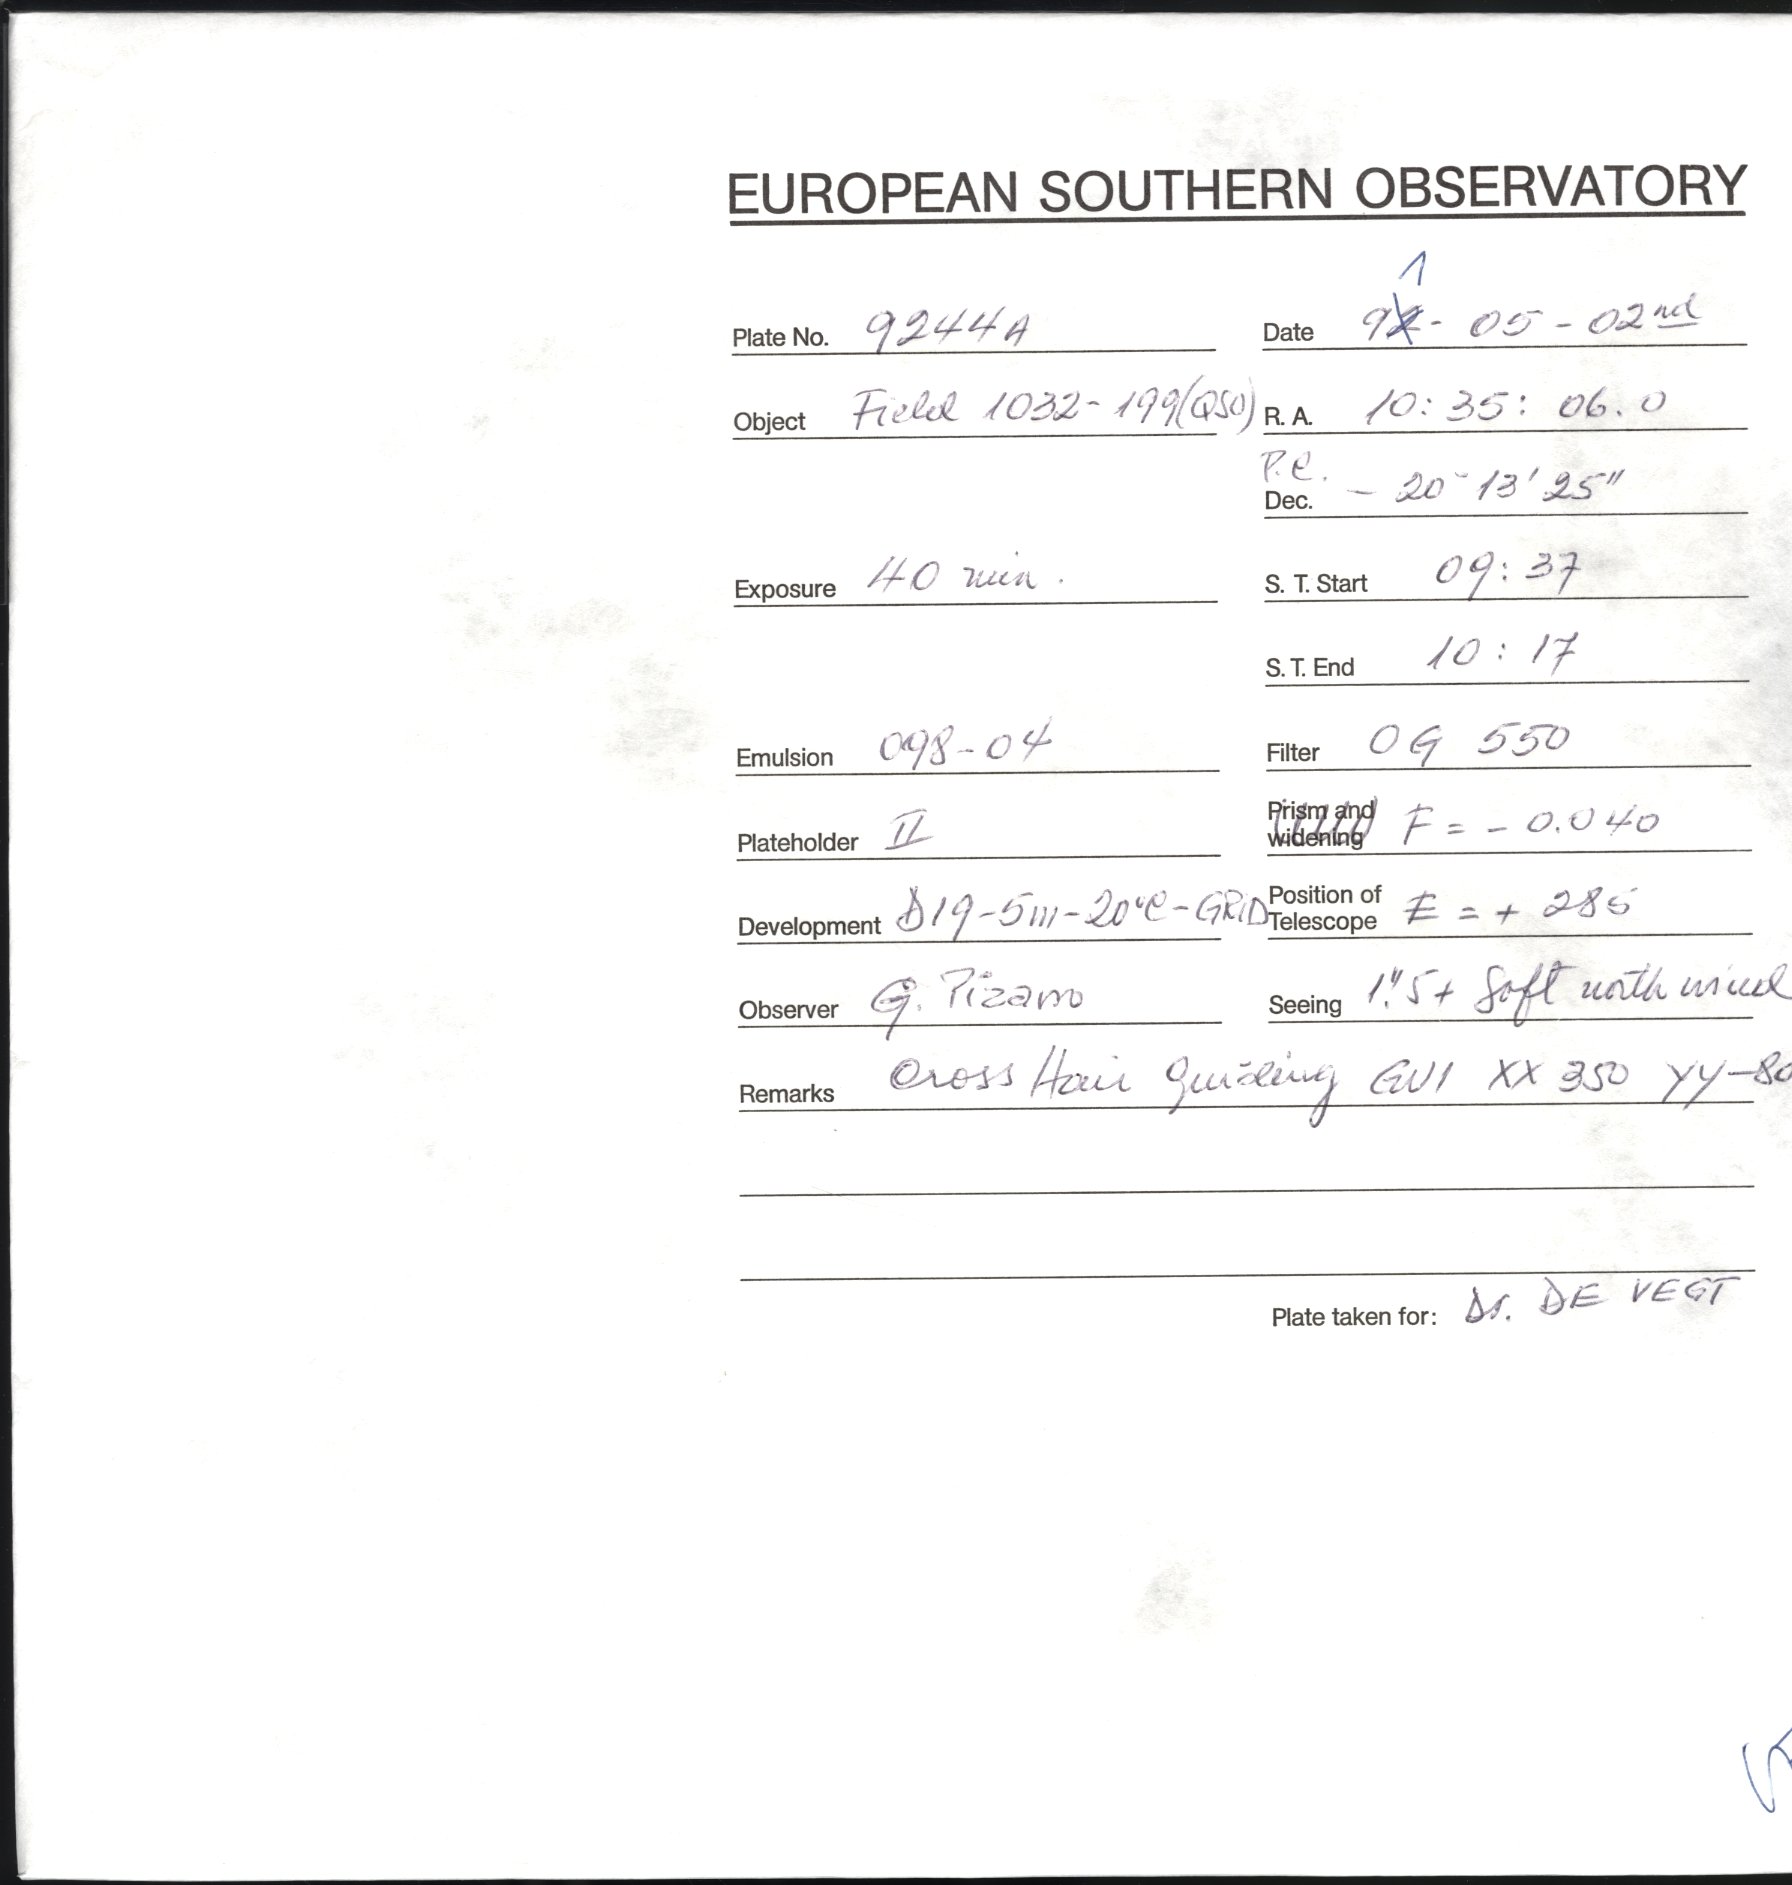 EUROPEAN SOUTHERN OBSERVATORY
1
Plate No. 9244A Date 92-05-02nd
Object Field 1032-199(QSO) R. A. 10:35:06.0
P.C.
Dec. - 20° 13' 25"
Exposure 40 min. S. T. Start 09:37
S. T. End 10:17
Emulsion 098-04 Filter OG 550
Plateholder II Prism and widening F = - 0.040
Development D19-5m-20°C-GRID Position of Telescope E = + 285
Observer G. Pizarro Seeing 1".5+ Soft north wind
Remarks Cross Hair guiding GV1 XX 350 YY-80
Plate taken for: Dr. DE VEGT